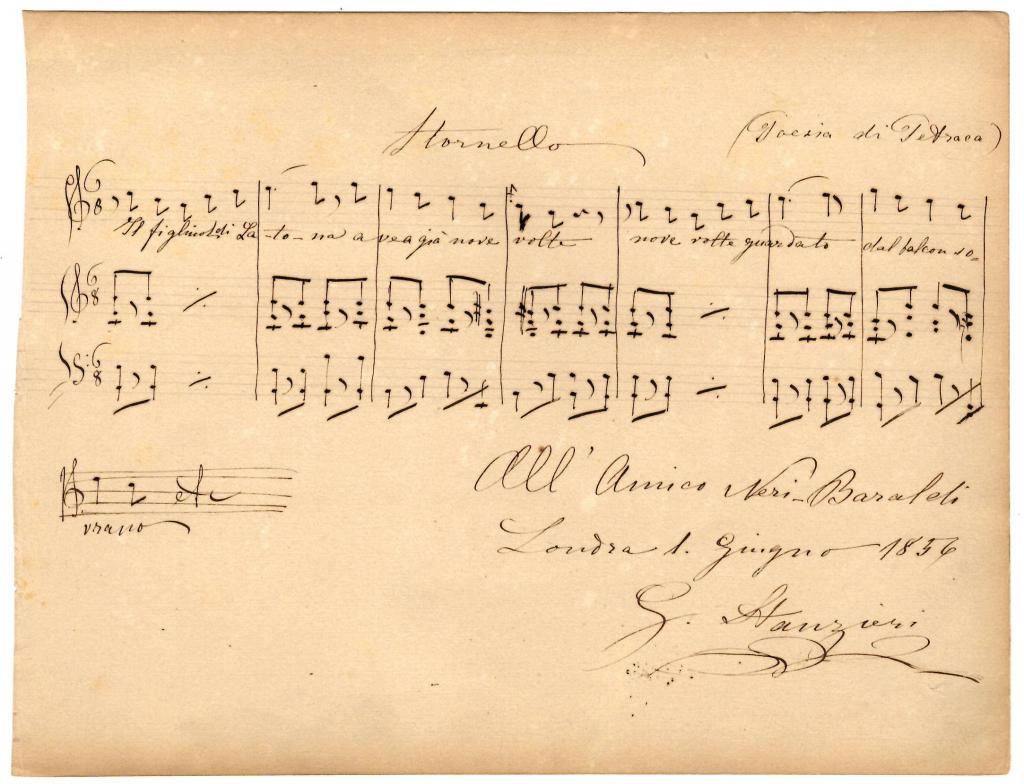 Stornello
(Poesia di Petraca)
Il figliuol di La-to-na avea già nove volte nove volte guardato dal balcon so-
vrano
etc
All' Amico Neri-Baraldi
Londra 1. Giugno 1856
G. Stanzieri